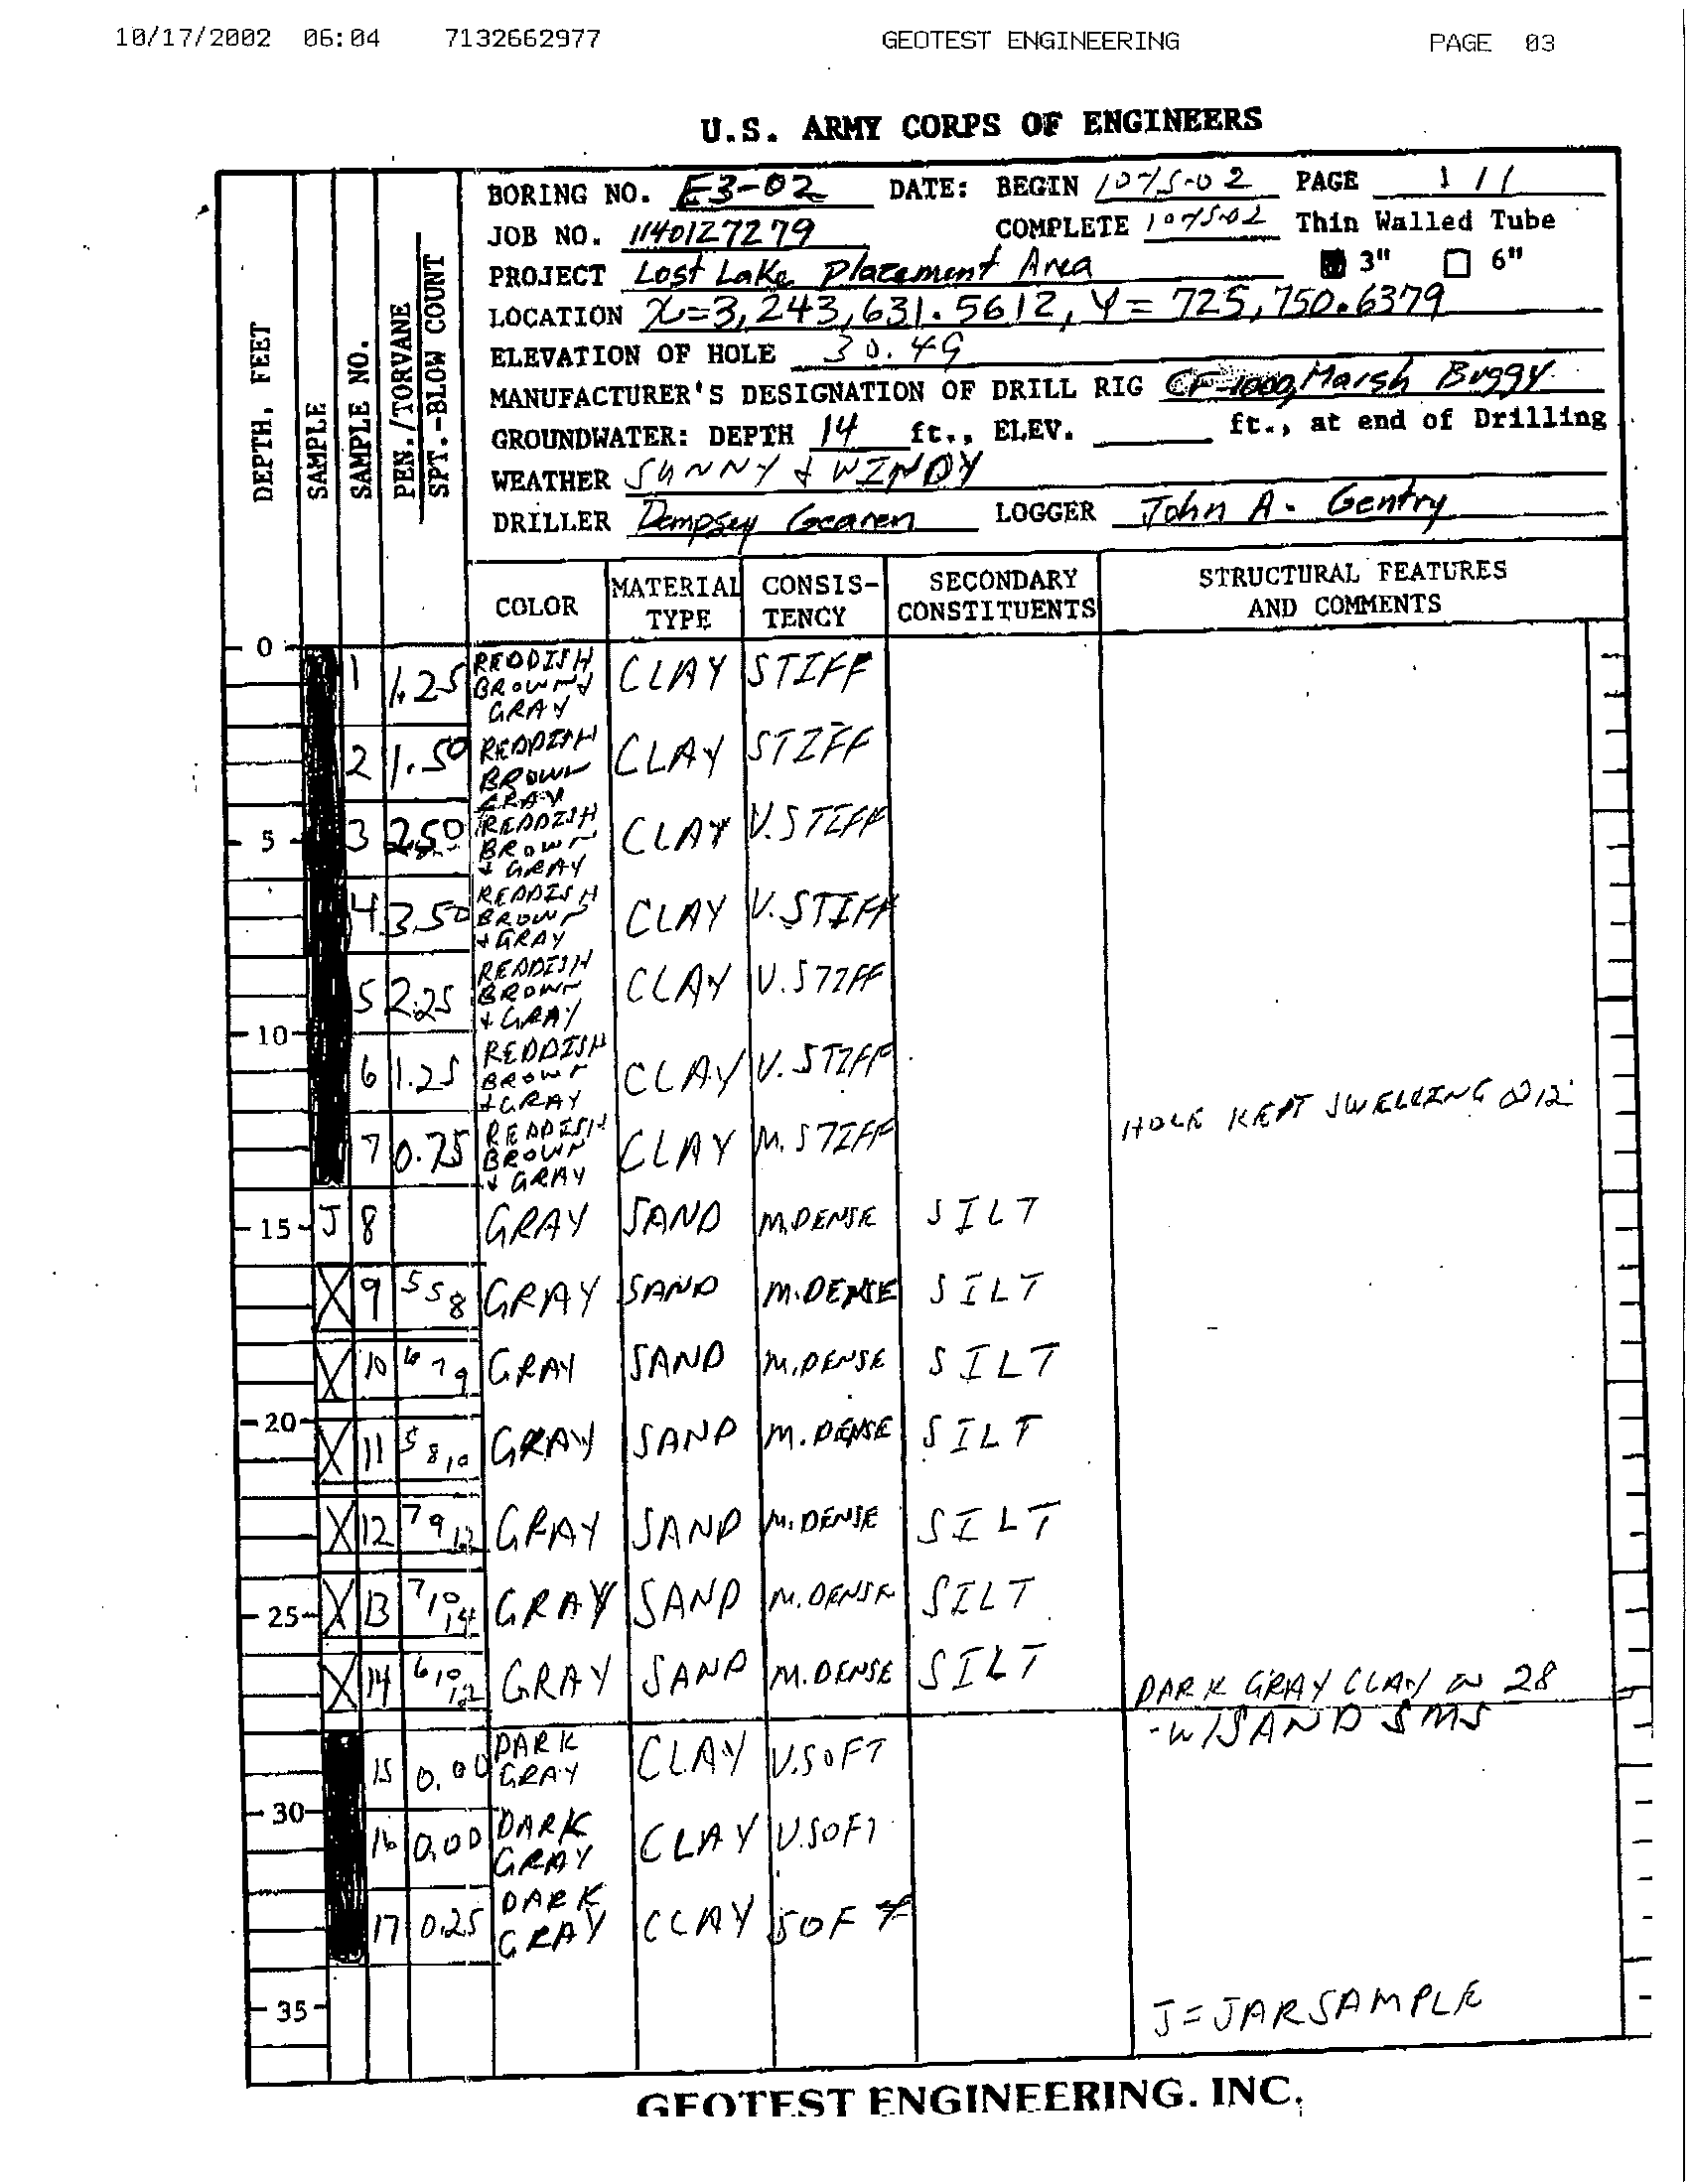 10/17/2002 06:04 7132662977 GEOTEST ENGINEERING PAGE 03
U.S. ARMY CORPS OF ENGINEERS
DEPTH, FEET
SAMPLE
SAMPLE NO.
PEN./TORVANE
SPT.-BLOW COUNT
BORING NO. E3-02 DATE: BEGIN 10/15-02 PAGE 1 / 1
JOB NO. 1140127279 COMPLETE 10/15-02 Thin Walled Tube
PROJECT Lost Lake Placement Area 3" 6"
LOCATION X=3,243,631.5612, Y=725,750.6379
ELEVATION OF HOLE 30.49
MANUFACTURER'S DESIGNATION OF DRILL RIG CF-1000, Marsh Buggy
GROUNDWATER: DEPTH 14 ft., ELEV. ft., at end of Drilling
WEATHER SUNNY & WINDY
DRILLER Dempsey Gearen LOGGER John A. Gentry
COLOR MATERIAL TYPE CONSIS-TENCY SECONDARY CONSTITUENTS STRUCTURAL FEATURES AND COMMENTS
0
1 1.25 REDDISH BROWN & GRAY CLAY STIFF
2 1.50 REDDISH BROWN GRAY CLAY STIFF
5 3 2.50 REDDISH BROWN & GRAY CLAY V.STIFF
4 3.50 REDDISH BROWN & GRAY CLAY V.STIFF
5 2.25 REDDISH BROWN & GRAY CLAY V.STIFF
10
6 1.25 REDDISH BROWN & GRAY CLAY V.STIFF
HOLE KEPT SWELLING @ 12'
7 0.75 REDDISH BROWN & GRAY CLAY M.STIFF
15 J 8 GRAY SAND M.DENSE SILT
9 5 5 8 GRAY SAND M.DENSE SILT
10 6 7 9 GRAY SAND M.DENSE SILT
20
11 5 8 10 GRAY SAND M.DENSE SILT
12 7 9 12 GRAY SAND M.DENSE SILT
25 13 7 10 14 GRAY SAND M.DENSE SILT
14 6 10 12 GRAY SAND M.DENSE SILT DARK GRAY CLAY @ 28
-W/SAND SMS
15 0.00 DARK GRAY CLAY V.SOFT
30
16 0.00 DARK GRAY CLAY V.SOFT
17 0.25 DARK GRAY CLAY SOFT
35 J=JAR SAMPLE
GEOTEST ENGINEERING, INC.